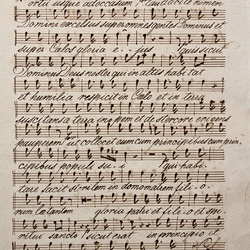 ortu usque ad occasum laudabile nomen
Domini excelsus super omnes gentes Dominus et
super Cælos gloria e - jus quis sicut
Dominus Deus noster qui in altis habitat
et humilia respicit in Cælo et in terra
suscitans a terra inopem et de stercore erigens
pauperem ut collocet eum cum principibus cum prin,
cipibus populi su - i qui habi,
tare facit sterilem in domo matrem fili - o
rum lætantem gloria patri et fili - o et spi
ritui sancto sicut erat in principio et